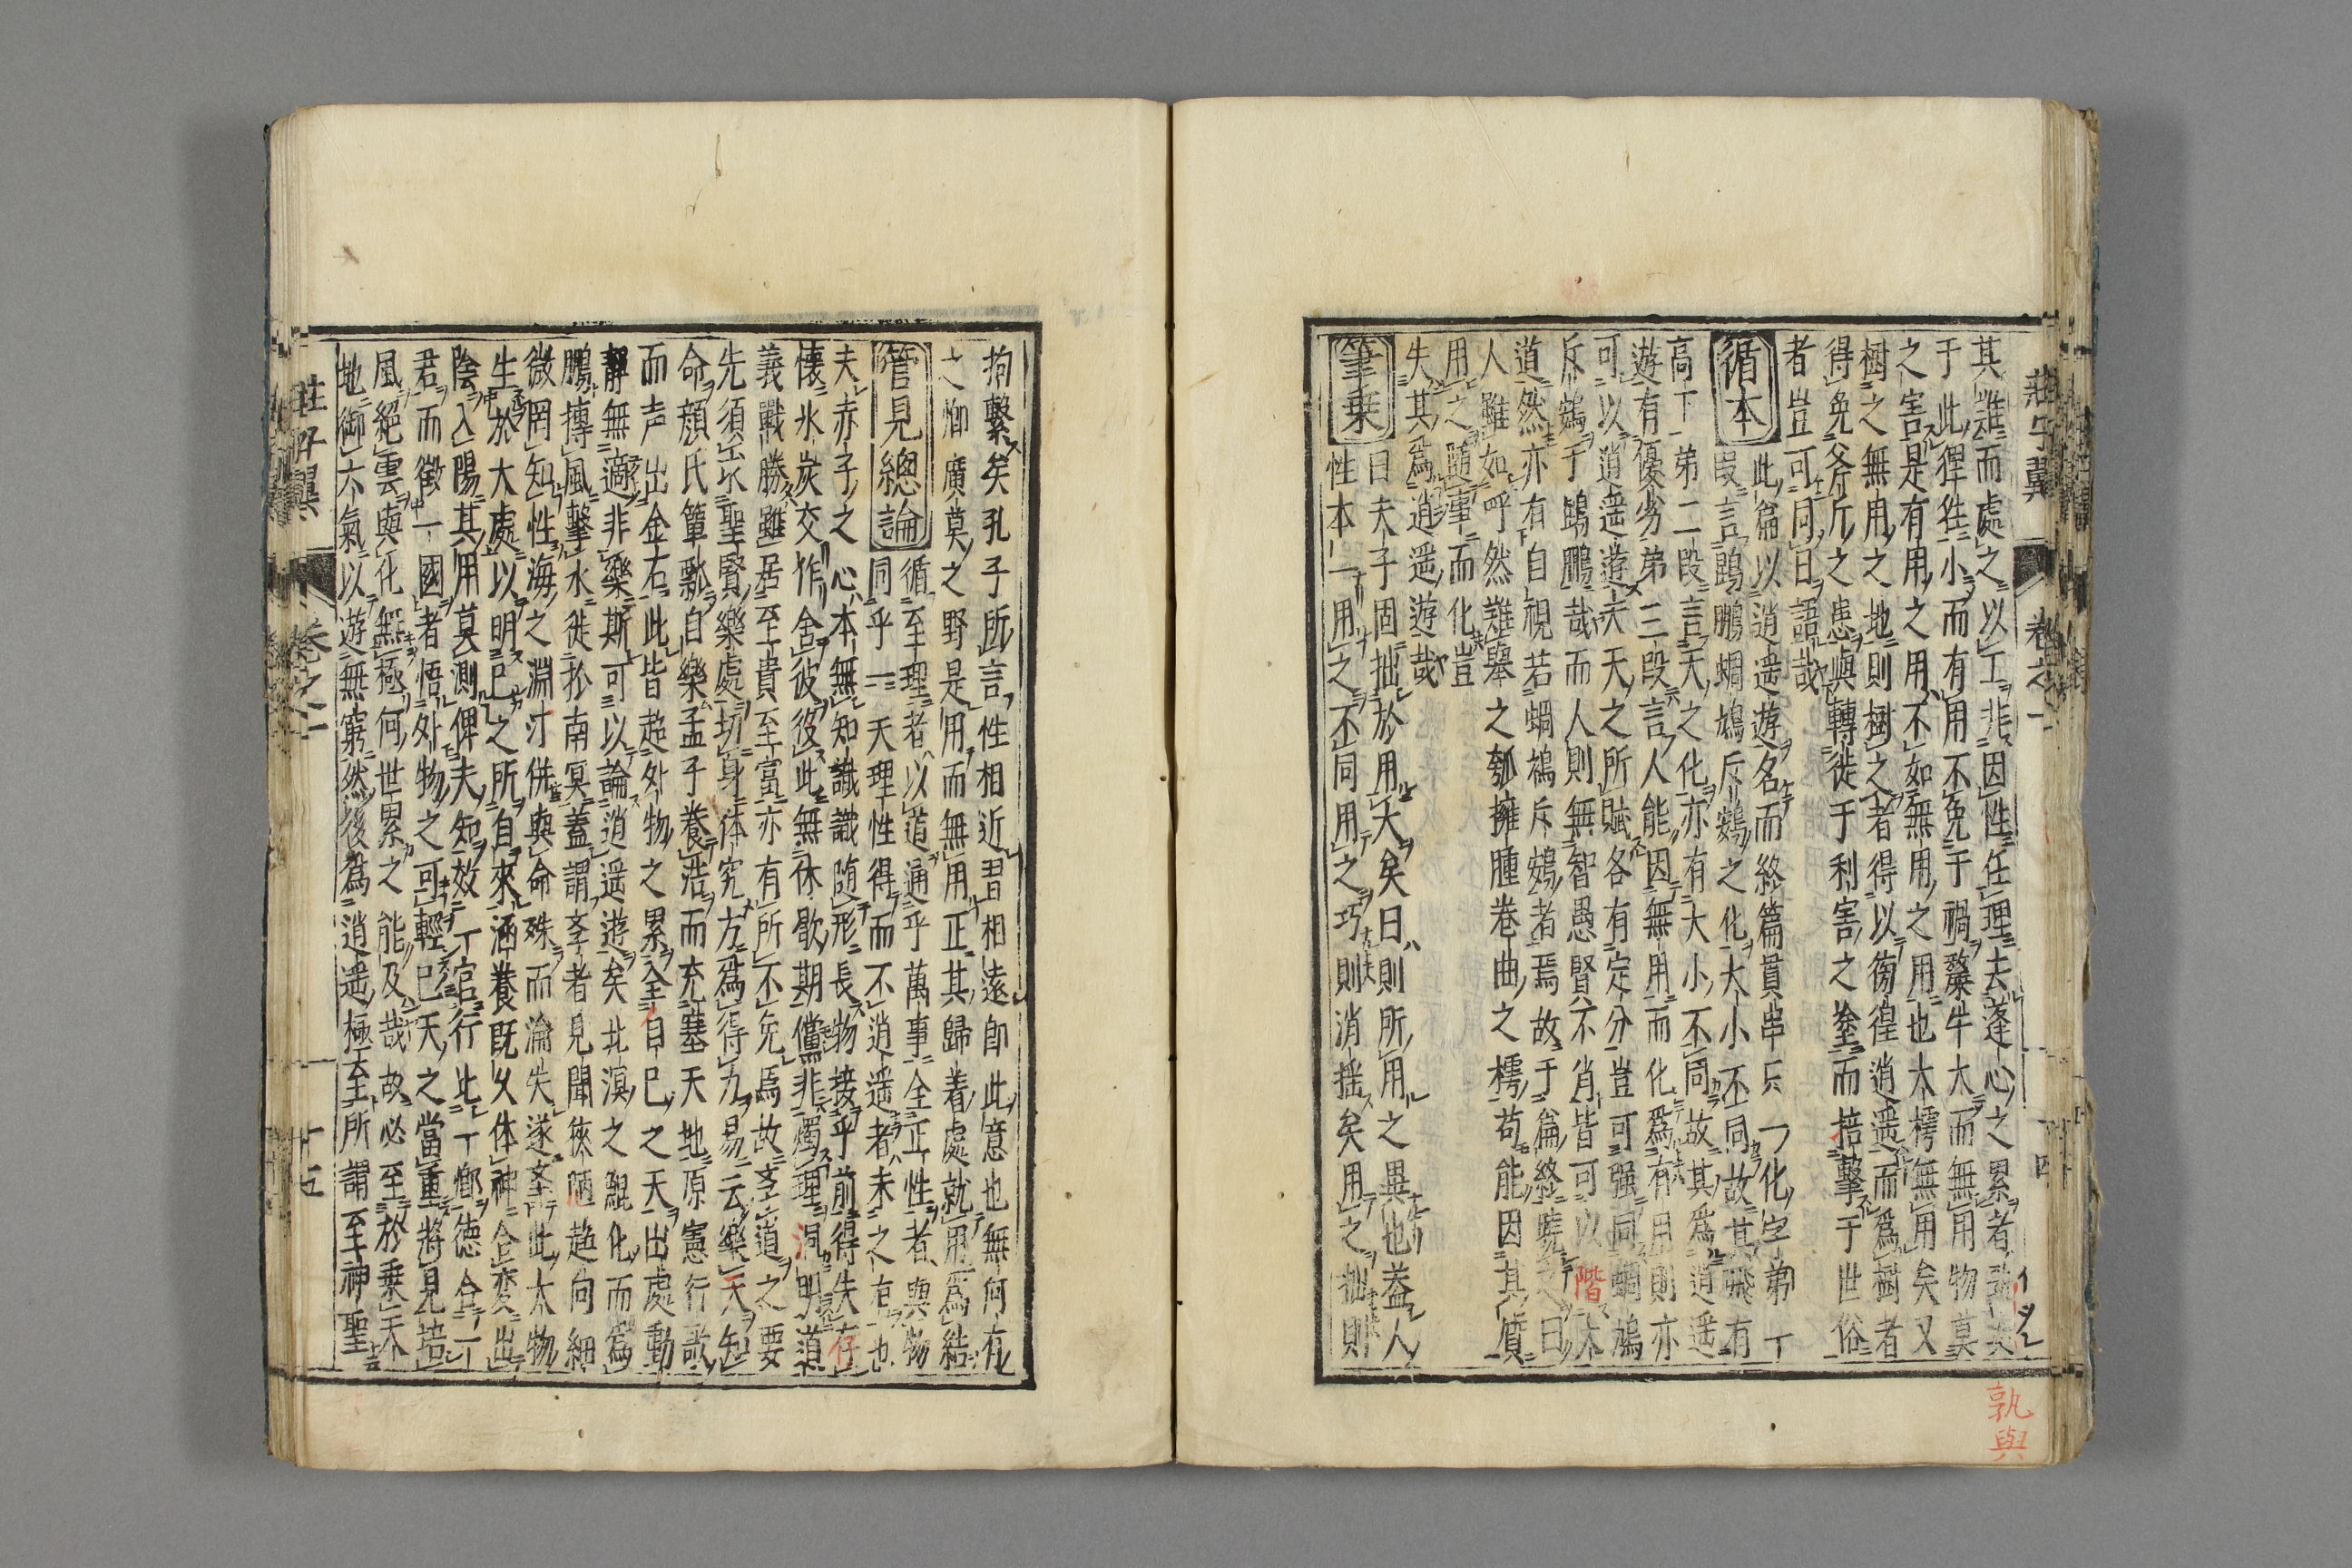 莊子翼　卷之一　四
其誰而處之以工非因性任理去蓬心之累者孰
于此狸狌小而有用不免于禍犛牛大而無用物莫
之害是有用之用不如無用之用也大樗無用矣又
樹之無用之地則樹之者得以徬徨逍遥而爲樹者
得免斧斤之患與轉徙于利害之塗而掊擊于世俗
者豈可同日語哉
循本
此篇以逍遥遊名而終篇貫串只一化字第一
段言鵾鵬蜩鳩斥鷃之化大小不同故其飛有
高下第二段言天之化亦有大小不同故其爲逍遥
遊有優劣第三段言人能因無用而化爲有用則亦
可以逍遥遊夫天之所賦各有定分豈可强同蜩鳩
斥鷃于鵾鵬哉而人則無智愚賢不肖皆可以階大
道然亦有自視若蜩鳩斥鷃者焉故于篇終曉之曰
人雖如呼然難舉之瓠擁腫卷曲之樗苟能因其質
用之隨事而化豈
失其爲逍遥遊哉
筆乗
曰夫子固拙於用大矣曰則所用之異也蓋人
性本一用之不同用之巧則消揺矣用之拙則
孰與
拘繫矣孔子所言性相近習相遠即此意也無何有
之鄉廣莫之野是用而無用正其歸着處就用爲結
管見總論
循至理者以道通乎萬事全正性者與物
同乎一天理性得而不逍遥者未之有也
夫赤子之心本無知識識随形長物接乎前得失
懷氷炭交作舍彼役此無休歇期儻非燭理洞明道
義戰勝雖居至貴至富亦有所不免焉故学道之要
先須求聖賢樂處切身体究方爲得力易云樂天知
命顔氏簞瓢自樂孟子養浩而充塞天地原憲行歌
而声出金石此皆超外物之累全自己之天出處動
靜無適非樂斯可以論逍遥遊矣北溟之鯤化而爲
鵬摶風擊水徙於南冥蓋謂学者見聞狹陋趍向細
微罔知性海之淵㳺併與命珠而淪失遂学此太物
生於大處以明己之所自來涵養既久体神合変出
陰入陽其用莫測俾夫知效一官行比一鄉徳合一
君而徴一國者悟外物之可輕己天之當重將見掊
風絕雲與化無極何世累之能及哉故必至於乗天
地御六氣以遊無窮然後爲逍遥極至所謂至神聖
莊子翼　卷之一　十五